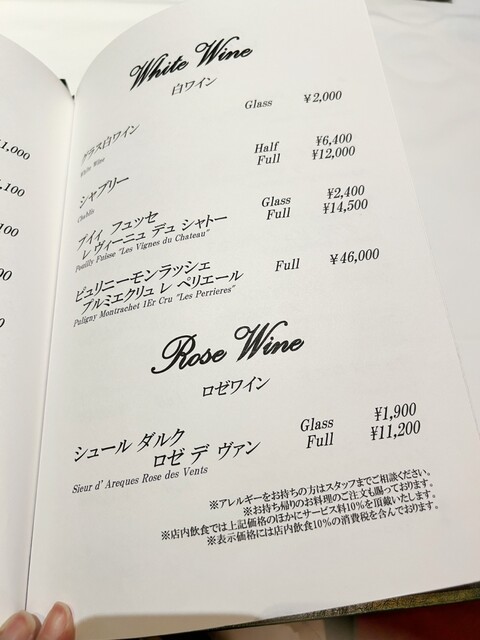 White Wine
白ワイン
グラス白ワイン
White Wine
Glass ¥2,000
シャブリー
Chablis
Half ¥6,400
Full ¥12,000
プイィ フュッセ
レ ヴィーニュ デュ シャトー
Pouilly Fuisse "Les Vignes du Chateau"
Glass ¥2,400
Full ¥14,500
ピュリニーモンラッシェ
プルミエクリュ レ ペリエール
Puligny Montrachet 1Er Cru "Les Perrieres"
Full ¥46,000
Rose Wine
ロゼワイン
シュール ダルク
ロゼ デ ヴァン
Sieur d'Areques Rose des Vents
Glass ¥1,900
Full ¥11,200
※アレルギーをお持ちの方はスタッフまでご相談ください。
※お持ち帰りのお料理のご注文も賜っております。
※店内飲食では上記価格のほかにサービス料10%を頂戴いたします。
※表示価格には店内飲食10%の消費税を含んでおります。